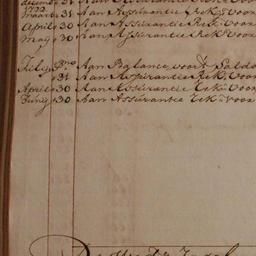 decemb. 31 Aan Assurantie Rek.g voor
1773
maart 31 Aan Assurantie Rek.g voor
April 30 Aan Assurantie Rek.g voor
may 30 Aan Assurantie Rek.g voor
July P.mo Aan Balance voor't Saldo
31 Aan Assurantie Rek. voor
April 30 Aan Assurantie Rek.g voor
Juny 30 Aan Assurantie Rek.g voor